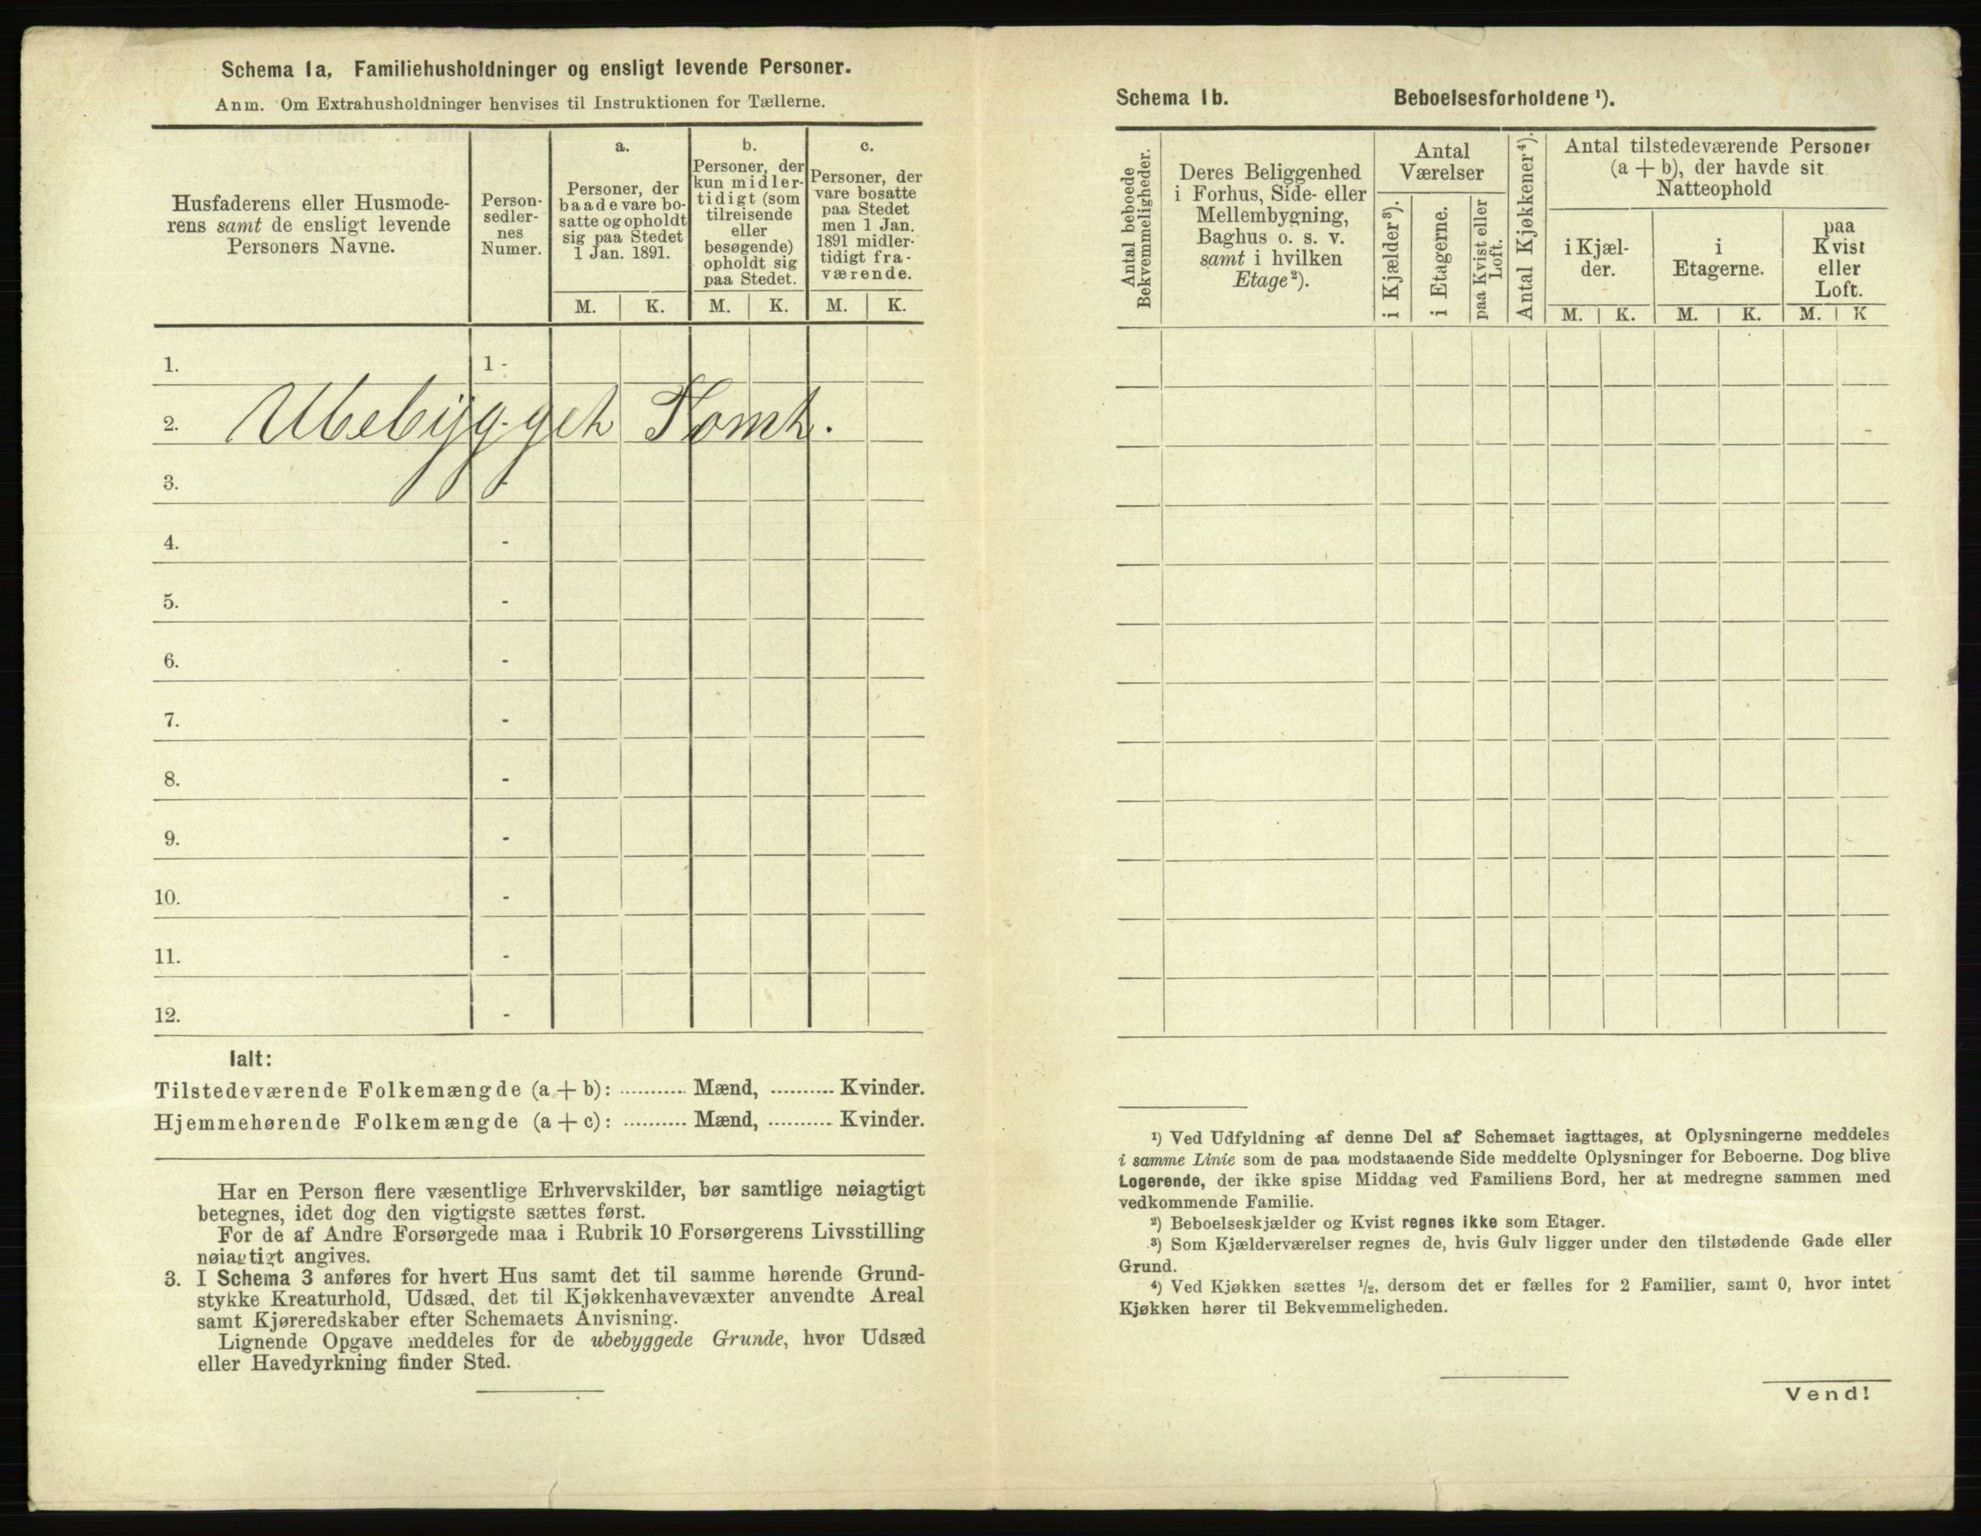 Schema 1a. Familiehusholdninger og ensligt levende Personer.
Anm. Om Extrahusholdninger henvises til Instruktionen for Tællerne.
Husfaderens eller Husmode-
rens samt de ensligt levende
Personers Navne.
Person-
sedler-
nes
Numer.
a.
Personer, der
baade vare bo-
satte og opholdt
sig paa Stedet
1 Jan. 1891.
b.
Personer, der
kun midler-
tidigt (som
tilreisende
eller
besøgende)
opholdt sig
paa Stedet.
c.
Personer, der
vare bosatte
paa Stedet
men 1 Jan.
1891 midler-
tidigt fra-
værende.
M. K. M. K. M. K.
1. 1 -
2. Ubebygget Tomt.
3. -
4. -
5. -
6. -
7. -
8. -
9. -
10. -
11. -
12. -
Ialt:
Tilstedeværende Folkemængde (a + b): ........... Mænd, ........... Kvinder.
Hjemmehørende Folkemængde (a + c): ........... Mænd, ........... Kvinder.
Har en Person flere væsentlige Erhvervskilder, bør samtlige nøiagtigt
betegnes, idet dog den vigtigste sættes først.
For de af Andre Forsørgede maa i Rubrik 10 Forsørgerens Livsstilling
nøiagtigt angives.
3. I Schema 3 anføres for hvert Hus samt det til samme hørende Grund-
stykke Kreaturhold, Udsæd, det til Kjøkkenhavevæxter anvendte Areal
samt Kjøreredskaber efter Schemaets Anvisning.
Lignende Opgave meddeles for de ubebyggede Grunde, hvor Udsæd
eller Havedyrkning finder Sted.
Schema 1b. Beboelsesforholdene ¹).
Antal beboede
Bekvemmeligheder.
Deres Beliggenhed
i Forhus, Side- eller
Mellembygning,
Baghus o. s. v.
samt i hvilken
Etage ²).
Antal
Værelser
i Kjælder ³).
i Etagerne.
paa Kvist eller
Loft.
Antal Kjøkkener ⁴).
Antal tilstedeværende Personer
(a + b), der havde sit
Natteophold
i Kjæl-
der.
i
Etagerne.
paa
Kvist
eller
Loft.
M. K. M. K. M. K
¹) Ved Udfyldning af denne Del af Schemaet iagttages, at Oplysningerne meddeles
i samme Linie som de paa modstaaende Side meddelte Oplysninger for Beboerne. Dog blive
Logerende, der ikke spise Middag ved Familiens Bord, her at medregne sammen med
vedkommende Familie.
²) Beboelseskjælder og Kvist regnes ikke som Etager.
³) Som Kjælderværelser regnes de, hvis Gulv ligger under den tilstødende Gade eller
Grund.
⁴) Ved Kjøkken sættes ½, dersom det er fælles for 2 Familier, samt 0, hvor intet
Kjøkken hører til Bekvemmeligheden.
Vend!